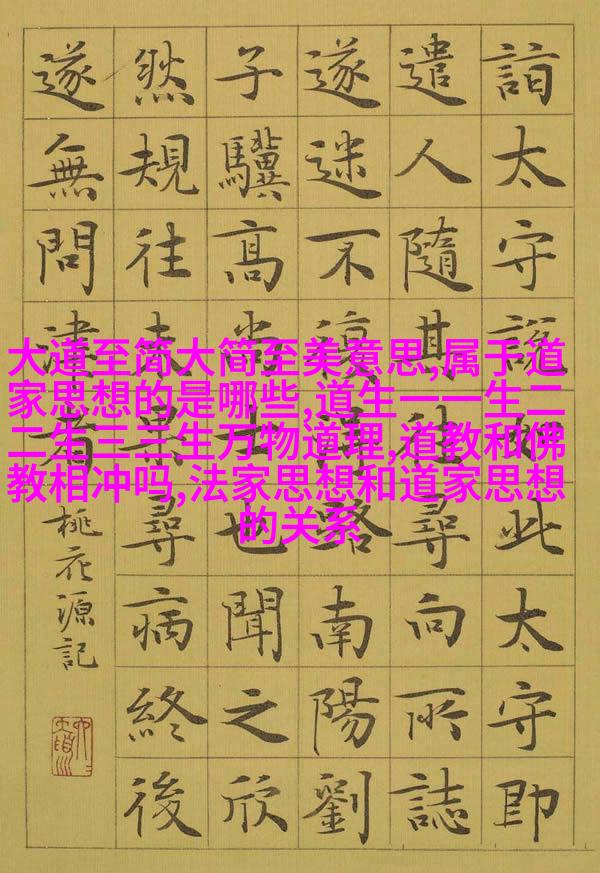 詣太守說如此太守即
遣人隨其往尋向所誌
遂迷不復得路南陽劉
子驥高尚士也聞之欣
然規往未果尋病終後
遂無問津者
桃花源記
大道至简大简至美意思,属于道
家思想的是哪些,道生一一生二
二生三三生万物道理,道教和佛
教相冲吗,法家思想和道家思想
的关系